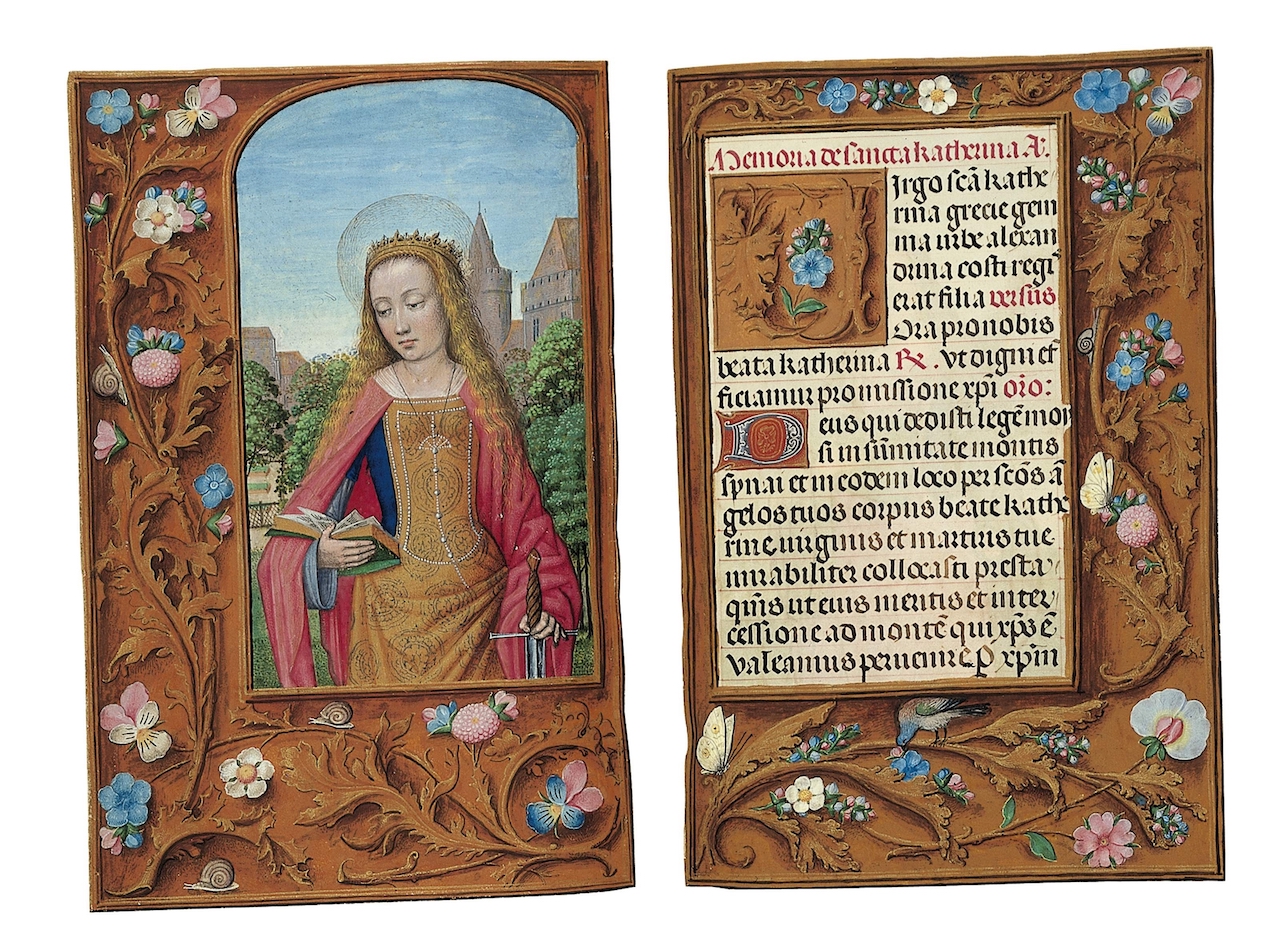 Memoria de sancta katherina A͞:
Virgo sc̄a kathe
rina grecie gem
ma urbe alexan
drina costi regi
erat filia versus
Ora pro nobis
beata katherina ℟. Vt digni ef
ficiamur promissione xp̄i or̄o:
Deus qui dedisti legē moi
si in sūmitate montis
synai et in eodem loco per sc̄os ā
gelos tuos corpus beate kathe
rine uirginis et martiris tue
mirabiliter collocasti presta
q̄m̄s ut eius meritis et inter
cessione ad montē qui xp̄s ē
valeamus peruenire P xp̄m